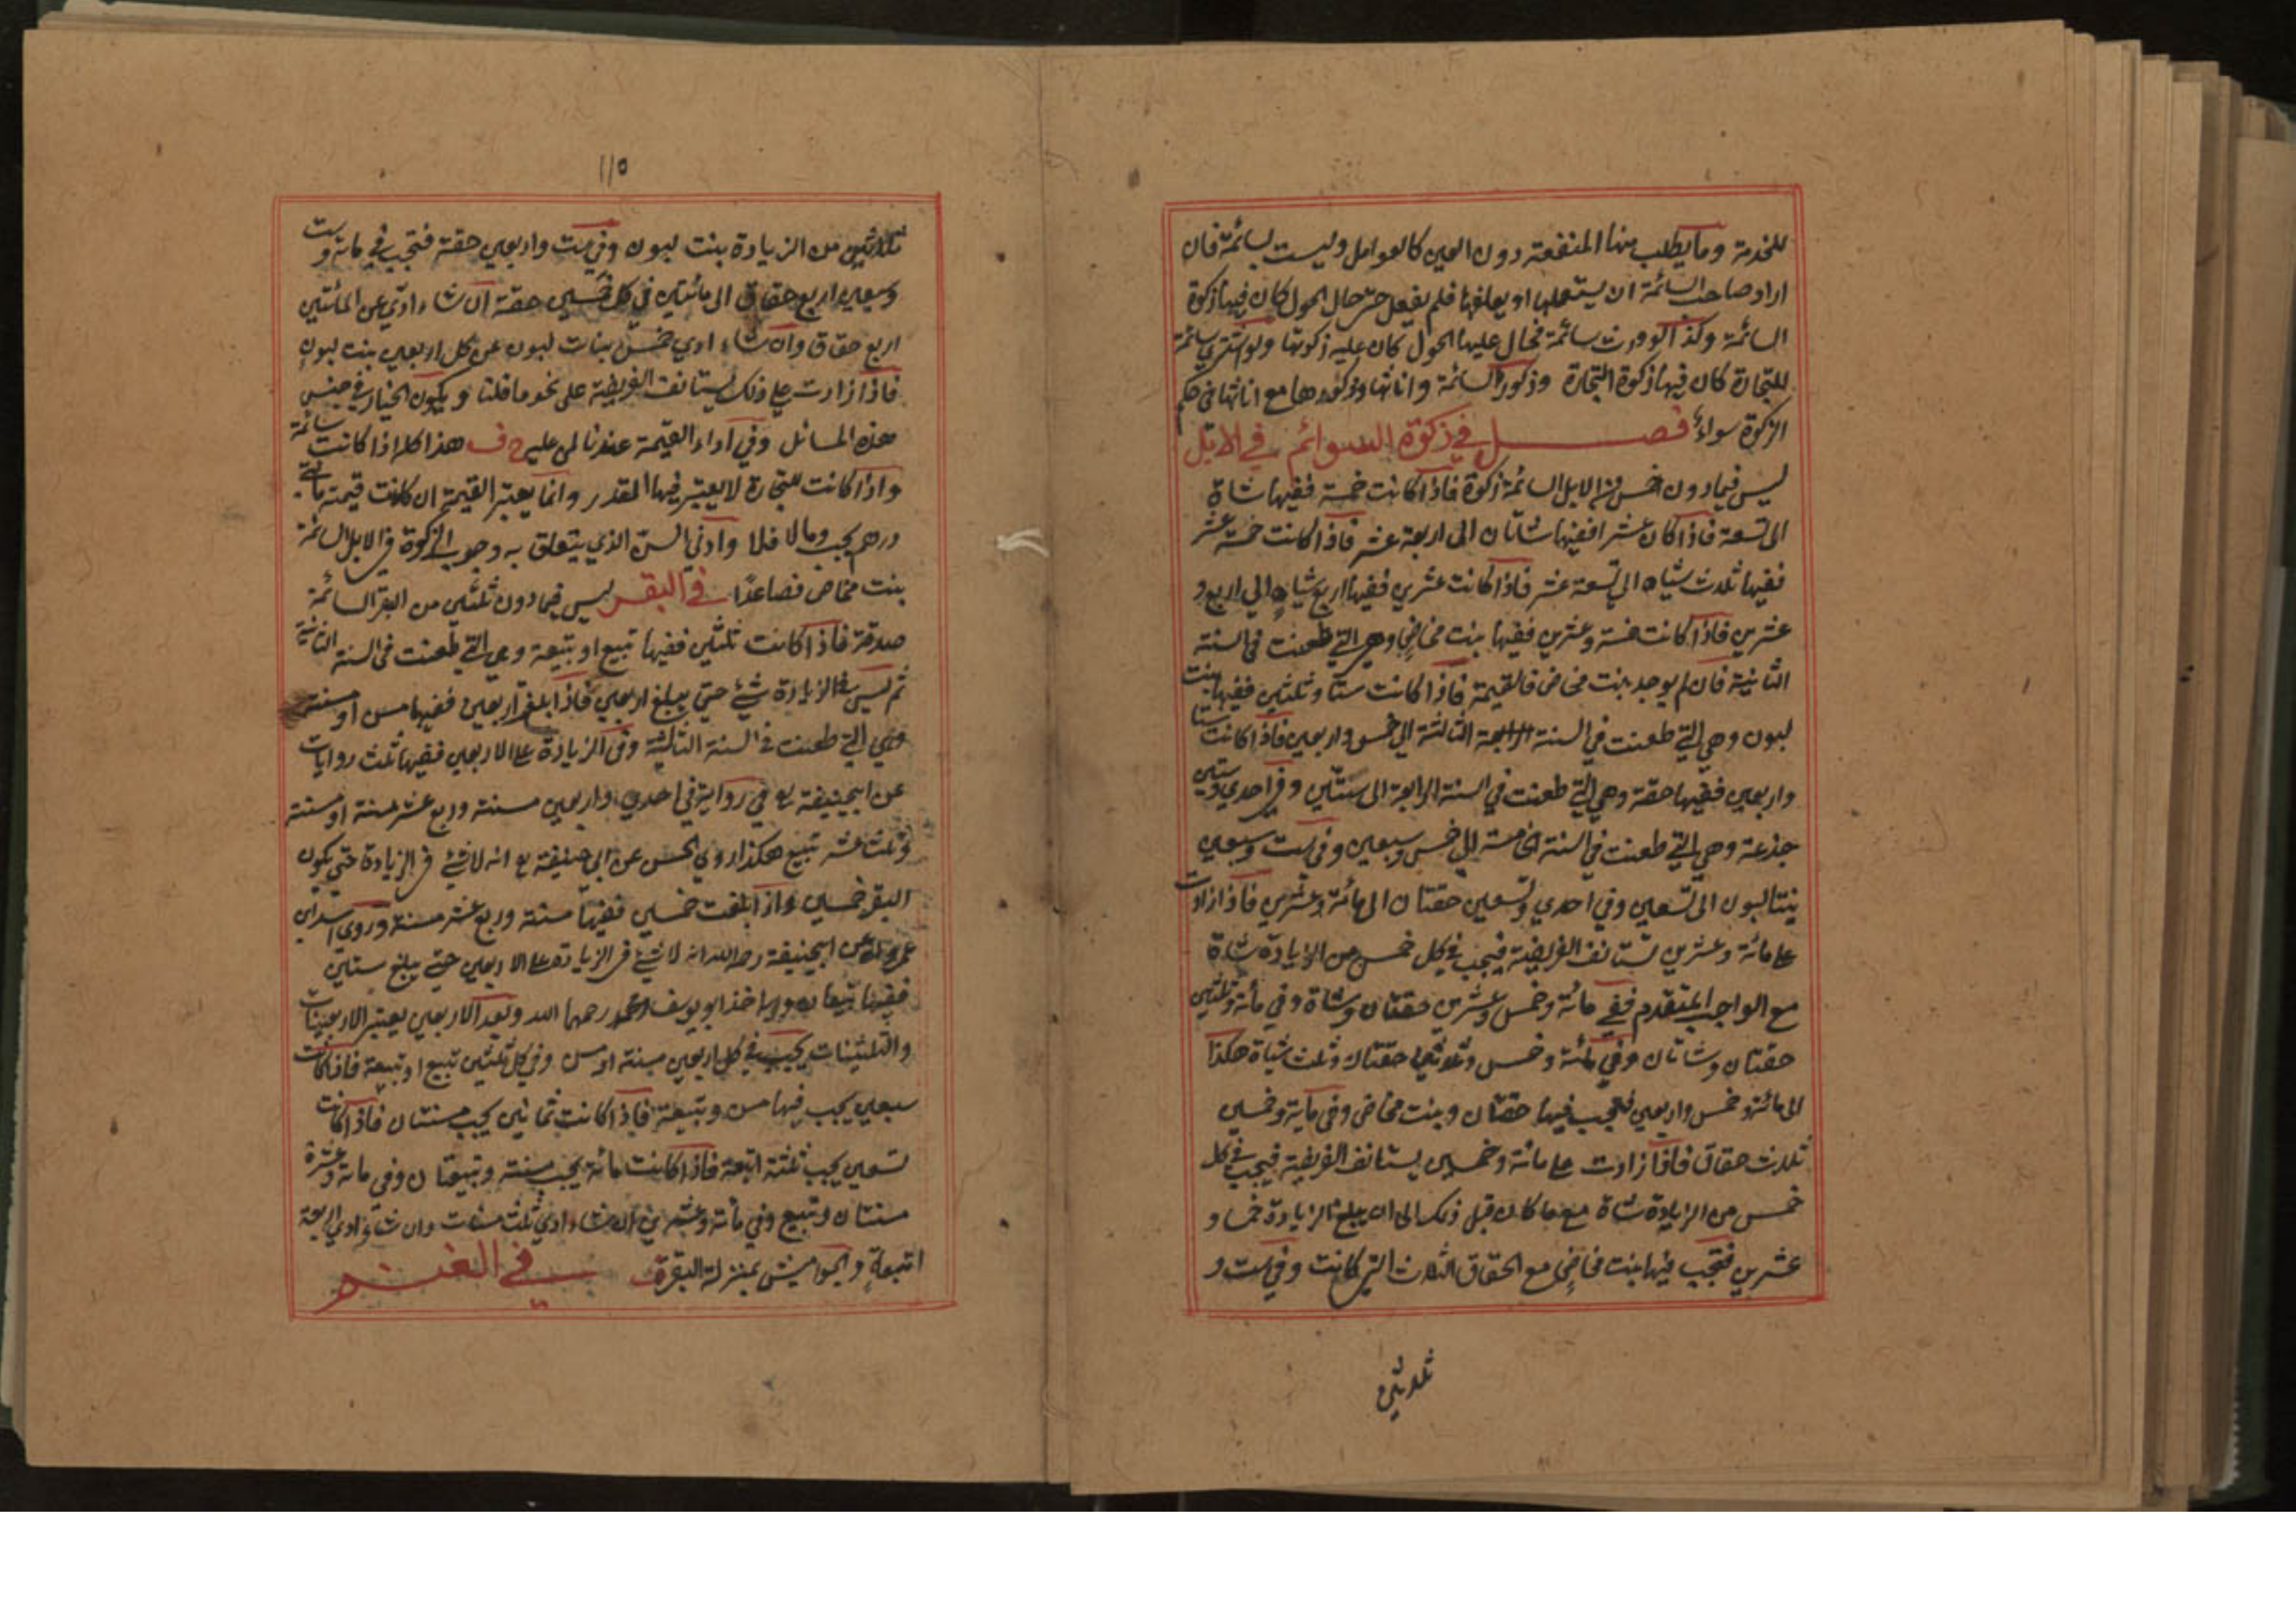 للخدمة وما يطلب منها المنفعة دون العين كالعوامل وليست بسائمة فان
اراد صاحب السائمة ان يستعملها او يعلفها فلم يفعل حتى حال الحول كان فيها زكوة
السائمة وكذا لو ورث سائمة فحال عليها الحول كان عليه زكوتها ولو اشترى سائمة
للتجارة كان فيها زكوة التجارة وذكور السائمة واناثها وذكورها مع اناثها في حكم
الزكوة سواء فصل في زكوة السوائم في الابل
ليس فيما دون خمس من الابل السائمة زكوة فاذا كانت خمسة ففيها شاة
الى تسعة فاذا كان عشرا ففيها شاتان الى اربعة عشر فاذا كانت خمسة عشر
ففيها ثلاث شياه الى تسعة عشر فاذا كانت عشرين ففيها اربع شياه الى اربع و
عشرين فاذا كانت خمسة وعشرين ففيها بنت مخاض وهي التي طعنت في السنة
الثانية فان لم يوجد بنت مخاض فالقيمة فاذا كانت ستا وثلثين ففيها بنت
لبون وهي التي طعنت في السنة الثالثة الى خمس واربعين فاذا كانت ستا
واربعين ففيها حقة وهي التي طعنت في السنة الرابعة الى ستين وفي احدي وستين
جذعة وهي التي طعنت في السنة الخامسة الى خمس وسبعين وفي ست وسبعين
بنتا لبون الى تسعين وفي احدي وتسعين حقتان الى مائة وعشرين فاذا زادت
على مائة وعشرين تستانف الفريضة فيجب في كل خمس من الزيادة شاة
مع الواجب المتقدم ففي مائة وخمس وعشرين حقتان وشاة وفي مائة وثلثين
حقتان وشاتان وفي مائة وخمس وثلاثين حقتان وثلث شياة هكذا
الى مائة وخمس واربعين فيجب فيها حقتان وبنت مخاض وفي مائة وخمسين
ثلاث حقاق فاذا زادت على مائة وخمسين يستانف الفريضة فيجب في كل
خمس من الزيادة شاة مع ما كان قبل ذلك الى ان يبلغ الزيادة خمسا و
عشرين فتجب فيها بنت مخاض مع الحقاق الثلاث التي كانت وفي ست و
ثلاثين
١١٥
ثلاثين من الزيادة بنت لبون وفي ست واربعين حقة فتجب في مائة وست
وتسعين اربع حقاق الى مائتين في كل خمسين حقة ان شاء ادى عن المائتين
اربع حقاق وان شاء ادي خمس بنات لبون عن كل اربعين بنت لبون
فاذا زادت على ذلك يستانف الفريضة على نحو ما قلنا ويكون الخيار في جنس
هذه المسائل وفي اداء القيمة عندنا لمن عليه هذا كله اذا كانت سائمة
واذا كانت للتجارة لا يعتبر فيها المقدر وانما يعتبر القيمة ان كانت قيمته مائتي
درهم يجب وما لا فلا وادنى السن الذي يتعلق به وجوب الزكوة في الابل السائمة
بنت مخاض فصاعدًا في البقر ليس فيما دون ثلثين من البقر السائمة
صدقة فاذا كانت ثلثين ففيها تبيع او تبيعة وهي التي طعنت في السنة الثانية
ثم ليس في الزيادة شيء حتى يبلغ اربعين فاذا بلغ اربعين ففيها مسن او مسنة
وهي التي طعنت في السنة الثالثة وفي الزيادة على الاربعين ففيها ثلث روايات
عن ابيحنيفة في رواية في احدي واربعين مسنة وربع عشر مسنة او مسنة
وثلث عشر تبيع هكذا روي الحسن عن ابي حنيفة انه لا شئ في الزيادة حتى يكون
البقر خمسين واذا بلغت خمسين ففيها مسنة وربع عشر مسنة وروى اسد ابن
عمرو عن ابيحنيفة رحمه الله انه لا شئ في الزيادة على الاربعين حتى يبلغ ستين
ففيها تبيعان وبه اخذ ابو يوسف ومحمد رحمهما الله وبعد الاربعين يعتبر الاربعينات
والثلثينات يجب في كل اربعين مسنة او مسن وفي كل ثلثين تبيع او تبيعة فاذا كانت
سبعين يجب فيها مسن وتبيعة فاذا كانت ثمانين يجب مسنتان فاذا كانت
تسعين يجب ثلثة اتبعة فاذا كانت مائة يجب مسنة وتبيعتان وفي مائة وعشرة
مسنتان وتبيع وفي مائة وعشرين ان شاء ادي ثلث مسنات وان شاء ادي اربعة
اتبعة والجواميش بمنزلة البقرة في الغنم